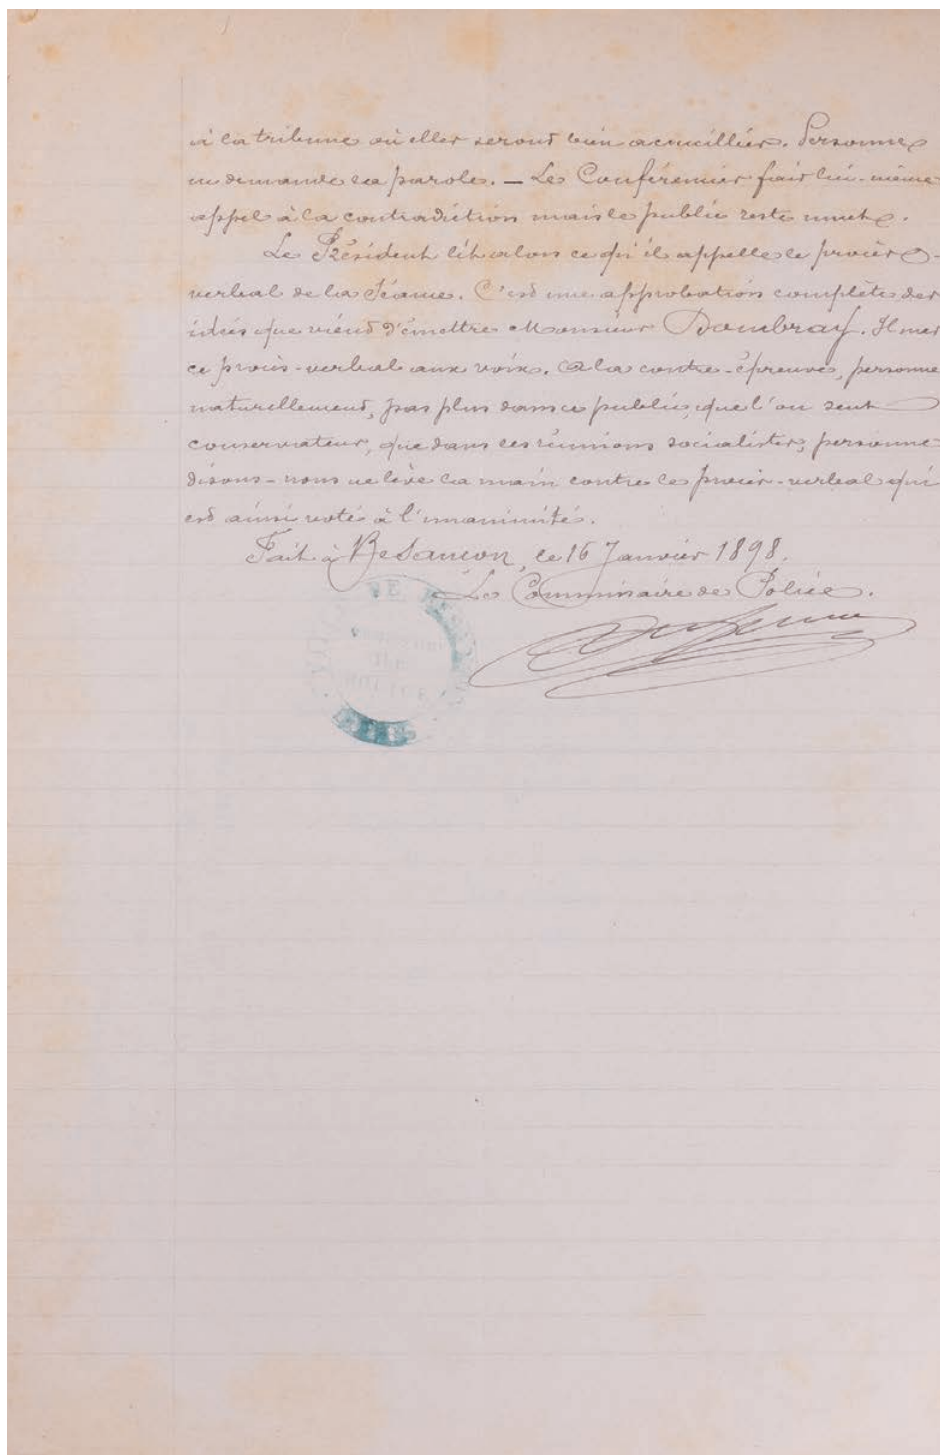 à la tribune où elles seront bien accueillies. Personne
ne demande la parole. — Le Conférencier fait lui-même
appel à la contradiction mais le public reste muet.
Le Président lit alors ce qu'il appelle le procès-
verbal de la Séance. C'est une approbation complète des
idées que vient d'émettre Monsieur Dombray. Il met
ce procès-verbal aux voix. A la contre-épreuve, personne
naturellement, pas plus dans ce public, que l'on sent
conservateur, que dans les réunions socialistes, personne
disons-nous ne lève la main contre le procès-verbal qui
est ainsi voté à l'unanimité.
Fait à Besançon, le 16 Janvier 1898.
Le Commissaire de Police.